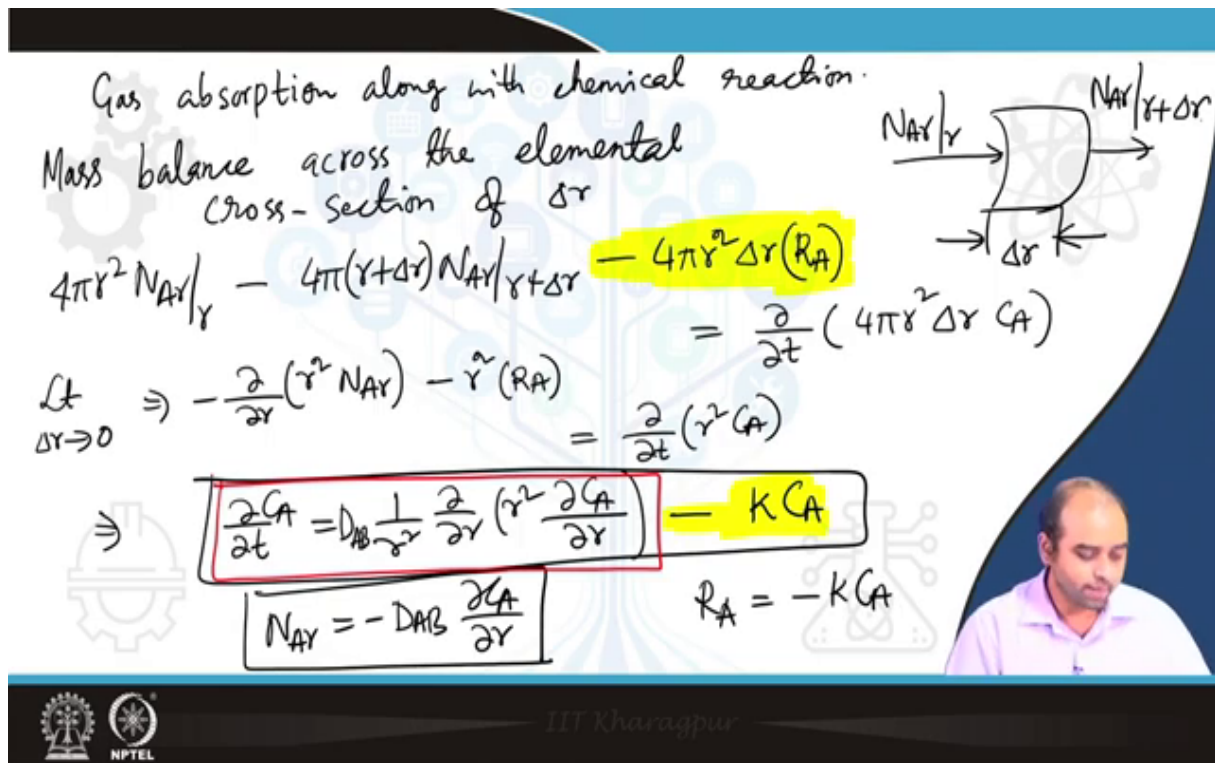 Gas absorption along with chemical reaction.
Mass balance across the elemental
cross-section of Δr
NAr|r
NAr|r+Δr
Δr
4πr² NAr|r − 4π(r+Δr) NAr|r+Δr − 4πr² Δr (RA)
= ∂/∂t (4πr² Δr CA)
Lt Δr→0 ⇒ − ∂/∂r (r² NAr) − r² (RA)
= ∂/∂t (r² CA)
⇒ ∂CA/∂t = DAB 1/r² ∂/∂r (r² ∂CA/∂r) − K CA
NAr = − DAB ∂CA/∂r
RA = − K CA
IIT Kharagpur
NPTEL